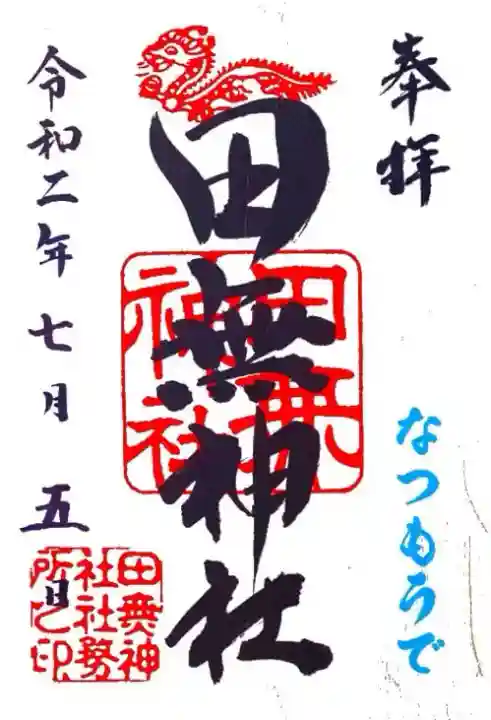 奉拝
なつもうで
田無神社
田無神社
令和二年七月五日
田無神社社務所之印